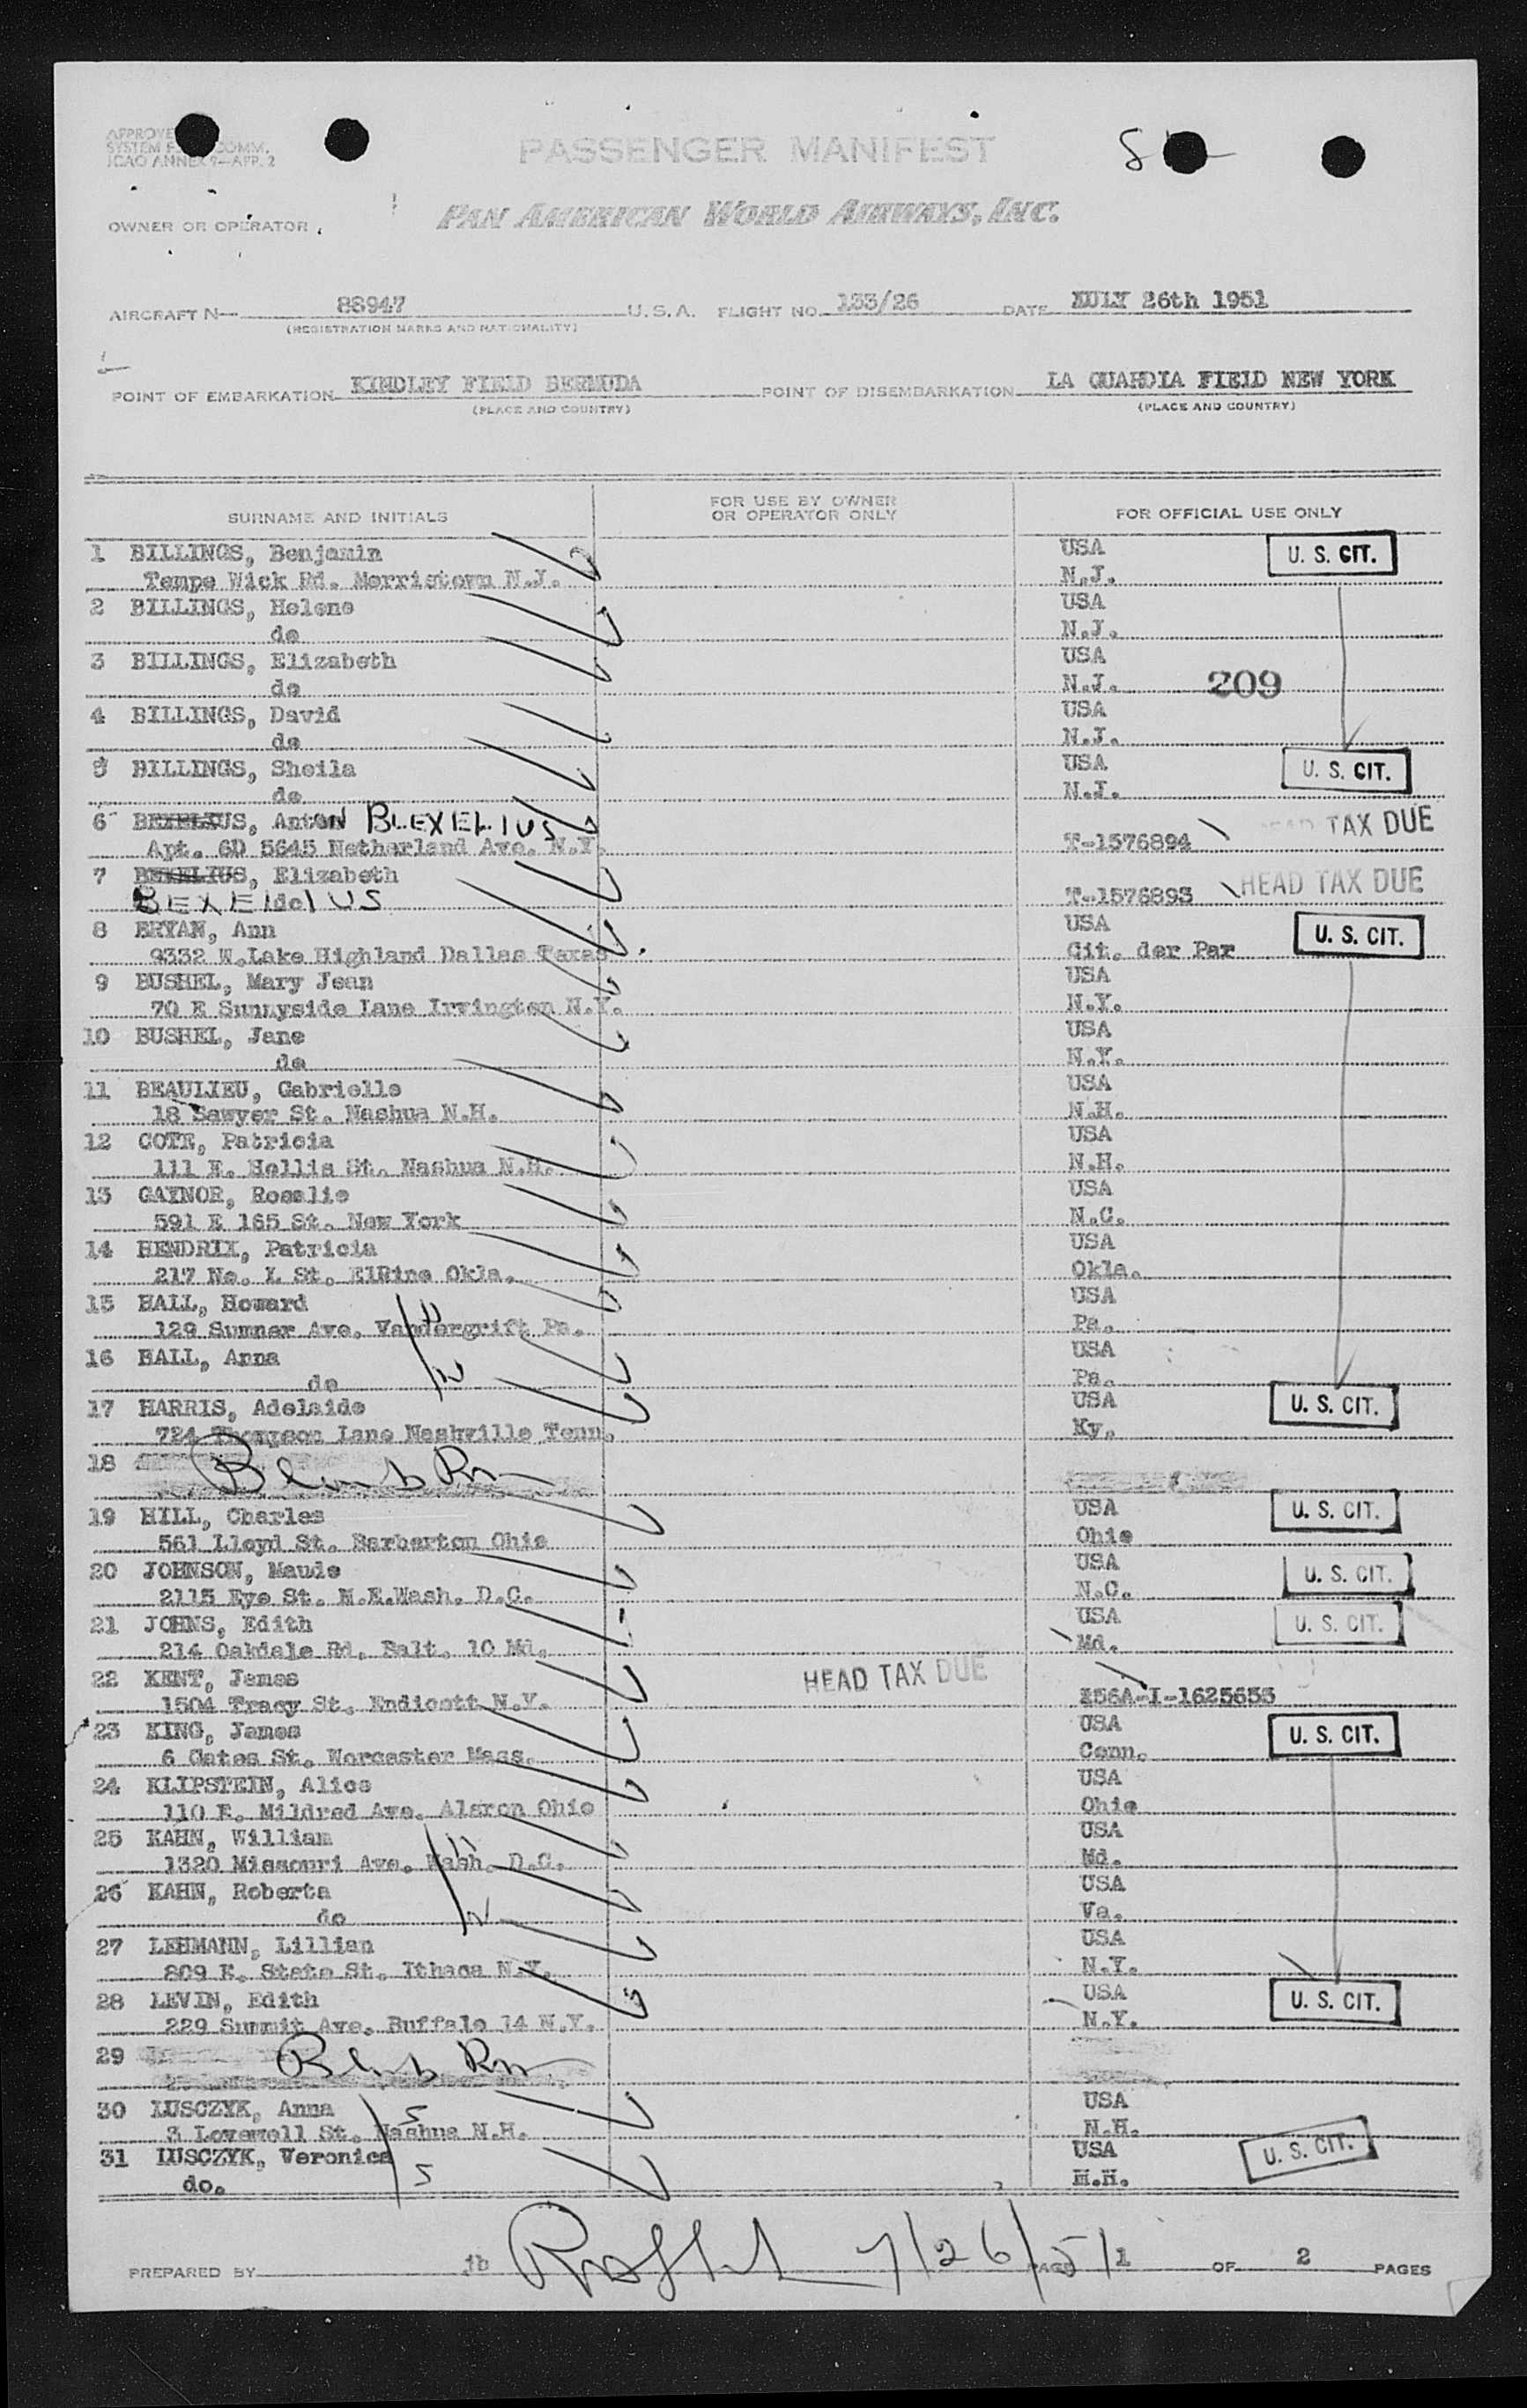 PASSENGER MANIFEST
PAN AMERICAN WORLD AIRWAYS, INC.
OWNER OR OPERATOR
AIRCRAFT N— 88947 U.S.A. FLIGHT NO. 133/26 DATE JULY 26th 1951
(REGISTRATION MARKS AND NATIONALITY)
POINT OF EMBARKATION KINDLEY FIELD BERMUDA POINT OF DISEMBARKATION LA GUARDIA FIELD NEW YORK
(PLACE AND COUNTRY) (PLACE AND COUNTRY)
SURNAME AND INITIALS FOR USE BY OWNER OR OPERATOR ONLY FOR OFFICIAL USE ONLY
1 BILLINGS, Benjamin USA U. S. CIT.
Tempe Wick Rd. Morristown N.J. N.J.
2 BILLINGS, Helene USA
do N.J.
3 BILLINGS, Elizabeth USA
do N.J. 209
4 BILLINGS, David USA
do N.J.
5 BILLINGS, Sheila USA U. S. CIT.
do N.J.
6 Anton BLEXELIUS TAX DUE
Apt. 6D 5645 Netherland Ave. N.Y. T-1576894
7 Elizabeth HEAD TAX DUE
BEXELIUS do T-1576893
8 BRYAN, Ann USA U. S. CIT.
9332 W.Lake Highland Dallas Texas Cit. der Par
9 BUSHEL, Mary Jean USA
70 E Sunnyside Lane Irvington N.Y. N.Y.
10 BUSHEL, Jane USA
do N.Y.
11 BEAULIEU, Gabrielle USA
18 Sawyer St. Nashua N.H. N.H.
12 COTE, Patricia USA
111 E. Hollis St. Nashua N.H. N.H.
13 GAYNOR, Rosalie USA
591 E 165 St. New York N.C.
14 HENDRIX, Patricia USA
217 No. L St. ElRino Okla. Okla.
15 HALL, Howard USA
129 Sumner Ave. Vandergrift Pa. Pa.
16 HALL, Anna USA
do Pa.
17 HARRIS, Adelaide USA U. S. CIT.
724 Thompson Lane Nashville Tenn. Ky.
18
19 HILL, Charles USA U. S. CIT.
561 Lloyd St. Barberton Ohio Ohio
20 JOHNSON, Maude USA U. S. CIT.
2115 Eye St. N.E.Wash. D.C. N.C.
21 JOHNS, Edith USA U. S. CIT.
214 Oakdale Rd. Balt. 10 Md. Md.
22 KENT, James HEAD TAX DUE
1504 Tracy St. Endicott N.Y. I-1625633
23 KING, James USA U. S. CIT.
6 Gates St. Worcester Mass. Conn.
24 KLIPSTEIN, Alice USA
110 E. Mildred Ave. Ohio Ohio
25 KAHN, William USA
1320 Missouri Ave. Wash. D.C. Md.
26 KAHN, Roberta USA
do Va.
27 LEHMANN, Lillian USA
809 E. State St. Ithaca N.Y. N.Y.
28 LEVIN, Edith USA U. S. CIT.
229 Summit Ave. Buffalo 14 N.Y. N.Y.
29
30 LUSCZYK, Anna USA
3 Lovewell St. Nashua N.H. N.H.
31 LUSCZYK, Veronica USA U. S. CIT.
do. N.H.
PREPARED BY jb 7/26/51 PAGE 1 OF 2 PAGES